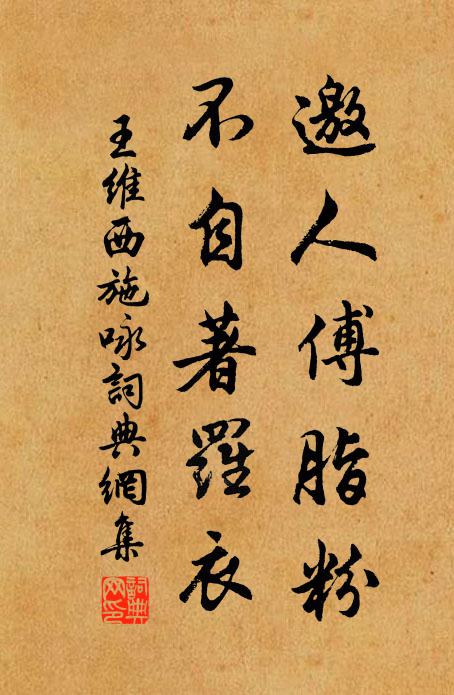 邀人傅脂粉
不自著羅衣
王維西施咏詞典網集
詞典網印